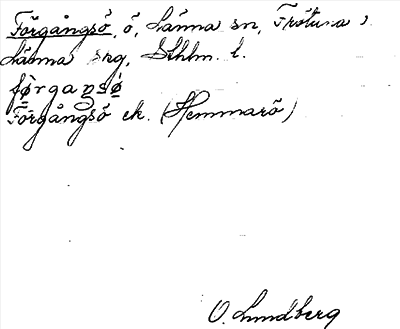 Förgångsö, ö, Länna sn, Frötuna o.
Länna srg, Sthlm. l.
førgaŋsø̀
Förgångsö ek. (Hemmarö)
O. Lundberg